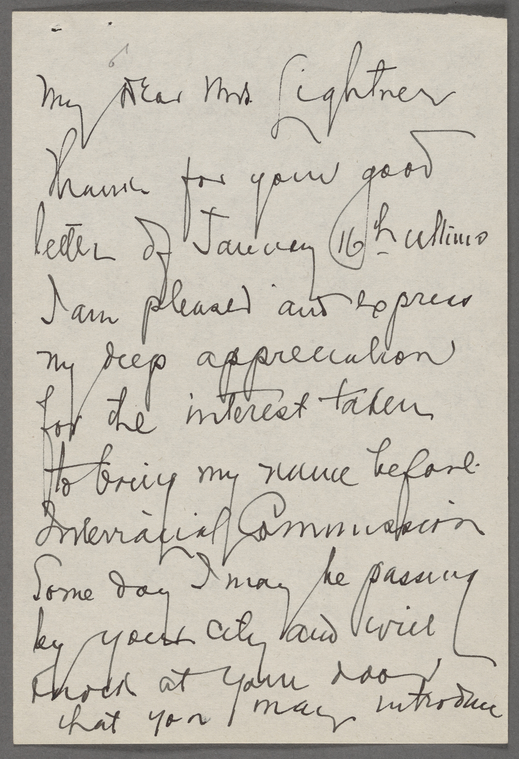 My dear Mrs. Lightner
Thanks for your good
letter of January 16th ultimo
I am pleased and express
my deep appreciation
for the interest taken
to bring my name before
Interracial Commission
Some day I may be passing
by your city and will
knock at your door
that you may introduce